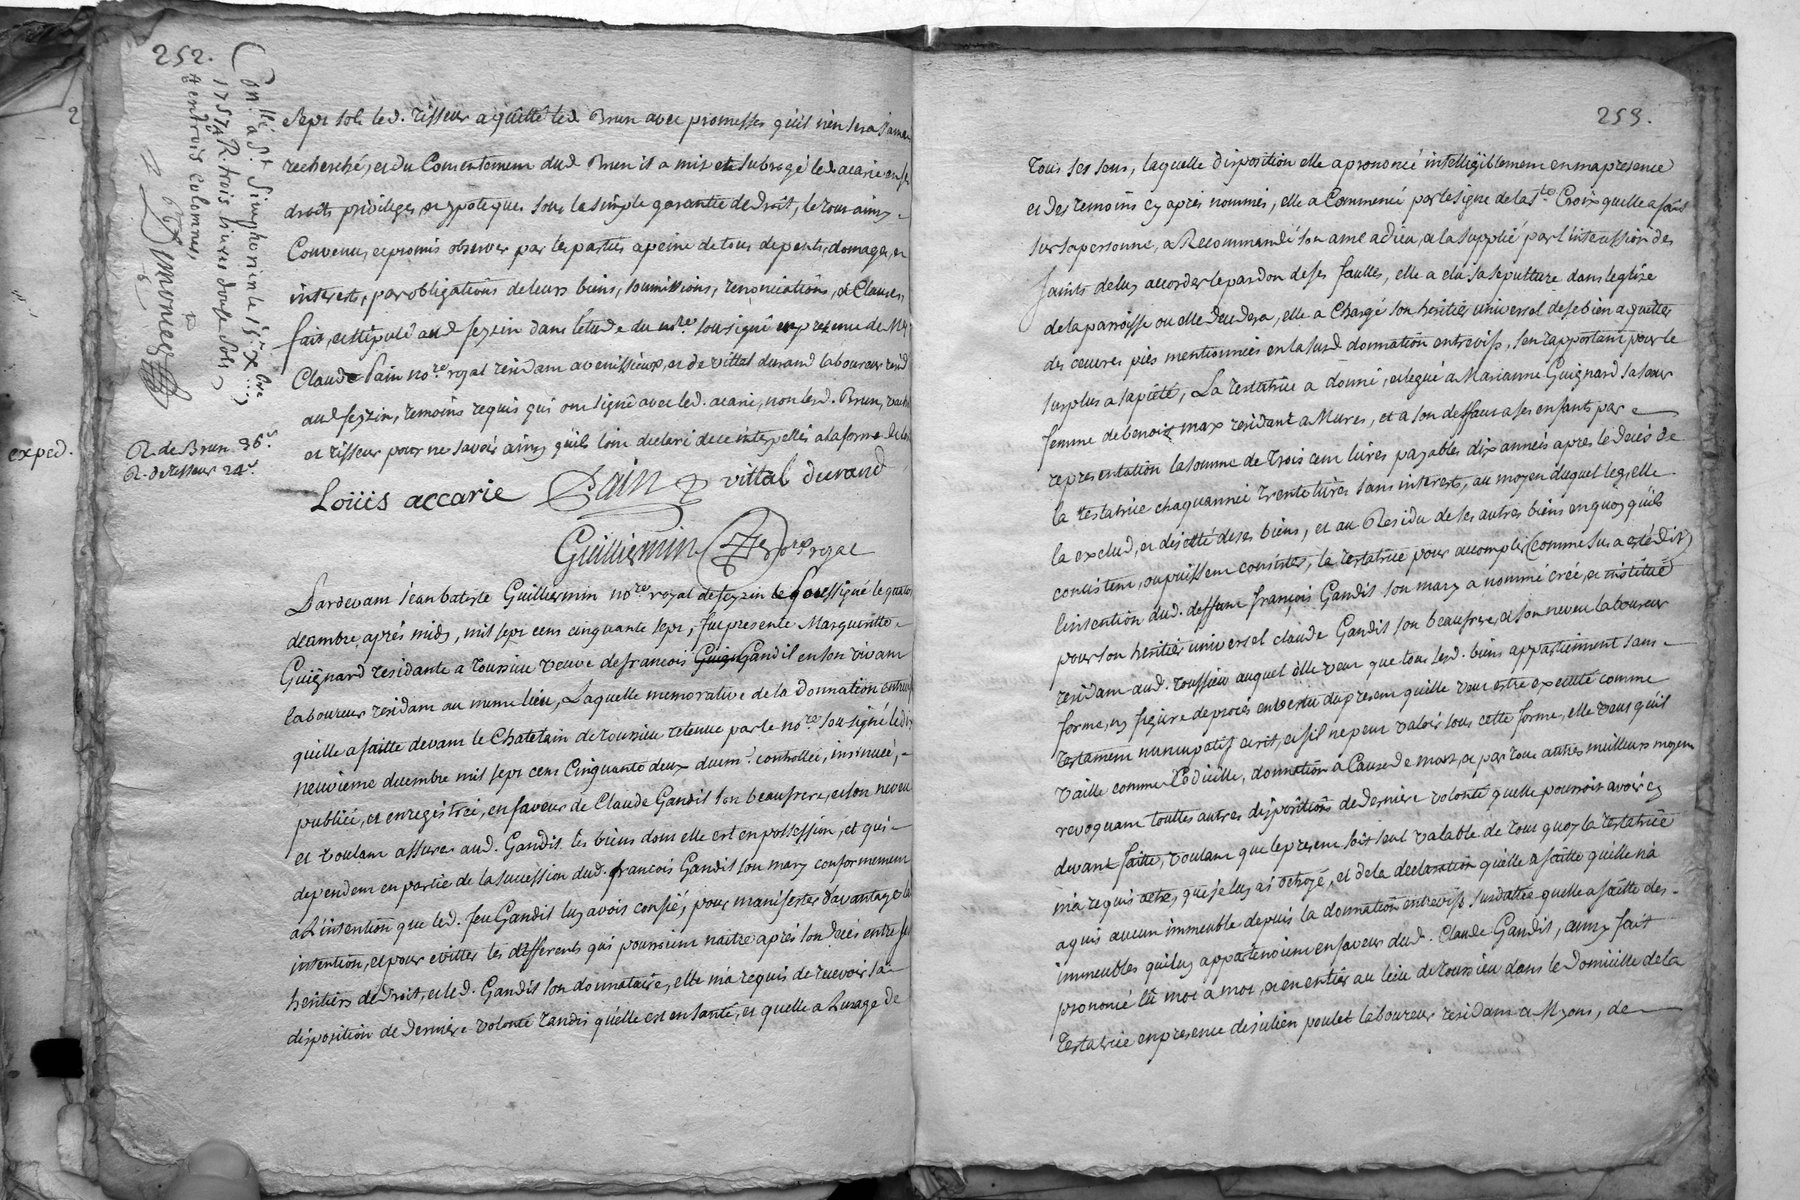 252.
Con.lé a St Simphorien le 15e Xbre
1757 R. trois livres douze sols
et en trois colomnes,
Simonet
exped.
R. de Brun 36s.
R. de tisseur 24s.
sept sols led. tisseur a quitté led. Brun avec promesses qu'il n'en sera jamais
recherché, et du Consentement dud. Brun il a mis et subrogé led. acarie en ses
droits privileges, et ypoteques sous la simple garantie de droit, le tout ainsy
Convenu, et promis observer par les parties a peine de tous depents, domages, et
interests, par obligations de leurs biens, soumissions, renonciations, et Clauses,
fait, et stipulé aud. feyzin dans l'etude du nore. soussigné en presence de Me
Claude Pain nore. royal residant a venissieux, et de vittal durand laboureur resid
aud. feyzin, temoins requis qui ont signé avec led. acarie, non led. Brun,
et tisseur pour ne savoir ainsy qu'ils l'ont declaré de ce interpellés a la forme de l'or
Loüis accarie Pain vittal durand
Guilliermin nore royal
Pardevant jean batiste Guilliermin nore. royal de feyzin le soussigné le quatorze
decembre après midy, mil sept cens cinquante sept, fut presente Margueritte
Guignard residante a toussieu veuve de francois Gandil en son vivant
laboureur residant au meme lieu, Laquelle memorative de la donnation entrevifs
qu'elle a faitte devant le Chatelain de toussieu retenue par le nore. soussigné le dix
neuvieme decembre mil sept cens Cinquante deux duemt. controllée, insinuée,
publiée, et enregistrée, en faveur de Claude Gandil son beaufrere, et son neveu
et voulant assurer aud. Gandil les biens dont elle est en possession, et qui
dependent en partie de la succession dud. francois Gandil son mary conformement
a L'intention que led. feu Gandil luy avoit confié, pour manifester d'avantage la
intention, et pour evitter les differents qui pourroient naitre après son decés entre ses
heritiers de droit, et led. Gandil son donnataire, elle m'a requis de recevoir sa
disposition de derniere volonté tandis qu'elle est en santé, et quelle a L'usage de
253.
tous ses sens, laquelle disposition elle a prononcé intelligiblement en ma presence
et des temoins cy après nommés, elle a Commencé par le signe de la Ste Croix quelle a fait
sur sa personne, a Recommandé son ame a dieu, a la supplié par l'intercession des
saints de luy accorder le pardon de ses fautes, elle a elu sa sepulture dans l'eglise
de la parroisse ou elle decedera, elle a Chargé son heritier universel de se bien aquitter
des oeuvres piés mentionnées en la susd. donnation entrevifs, s'en rapportant pour le
surplus a sa pieté, La testatrice a donné, et legué a Marianne Guignard sa soeur
femme de benoit max residant a Mures, et a son deffaut a ses enfants par
representation la somme de trois cent livres payables dix années apres le decés de
la testatrice chaquannée trente livres sans interest, au moyen duquel leg, elle
la exclud, et dejetté de ses biens, et au Residu de ses autres biens en quoy qu'ils
consistent, ou puissent consister, la testatrice pour accomplir (comme sus a eté dit)
l'intention dud. deffunt françois Gandil son mary a nommé creé, et institué
pour son heritier universel claude Gandil son beaufrere, et son neveu laboureur
residant aud. toussieu auquel elle veut que tous lesd. biens appartiennent sans
forme, ny figure de procés en vertu du present qu'elle veut estre executé comme
testament nuncupatif ecrit, et s'il ne peut valoir sous cette forme, elle veut qu'il
vaille comme Codicille, donnation a Cause de mort, et par tous autres meilleurs moyens
revoquant touttes autres dispositions de derniere volonté quelle pourroit avoir cy
devant faitte, voulant que le present soit seul valable de tout quoy la testatrice
m'a requis acte, que je luy ai octroyé, et de la declaration qu'elle a faitte qu'elle n'a
aquis aucun immeuble depuis la donnation entrevifs susdattée quelle a faitte des
immeubles qui luy appartenoient en faveur dud. Claude Gandil, ainsy fait
prononcé lû mot a mot, et en entier au lieu de toussieu dans le domicille de la
testatrice en presence de julien poulet laboureur residant a Myons, de